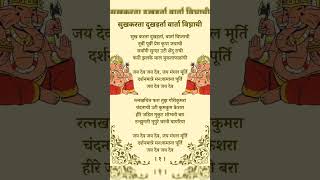 सुखकर्ता दुखहर्ता वार्ता विघ्नाची
सुख करता दुखहर्ता, वार्ता विघ्नाची
नुरवी पुरवी प्रेम कृपा जयाची
सर्वांगी सुन्दर उटी शेंदु राची
कंठी झळके माळ मुक्ताफळांची
जय देव जय देव, जय मंगल मूर्ति
दर्शनमात्रे मनःकामना पूर्ति
जय देव जय देव
रत्नखचित फरा तुझ गौरीकुमरा
चंदनाची उटी कुमकुम केशरा
हीरे जडित मुकुट शोभतो बरा
रुन्झुनती नूपुरे चरणी घागरिया
जय देव जय देव, जय मंगल मूर्ति
दर्शनमात्रे मनःकामना पूर्ति
जय देव जय देव
। १ ।